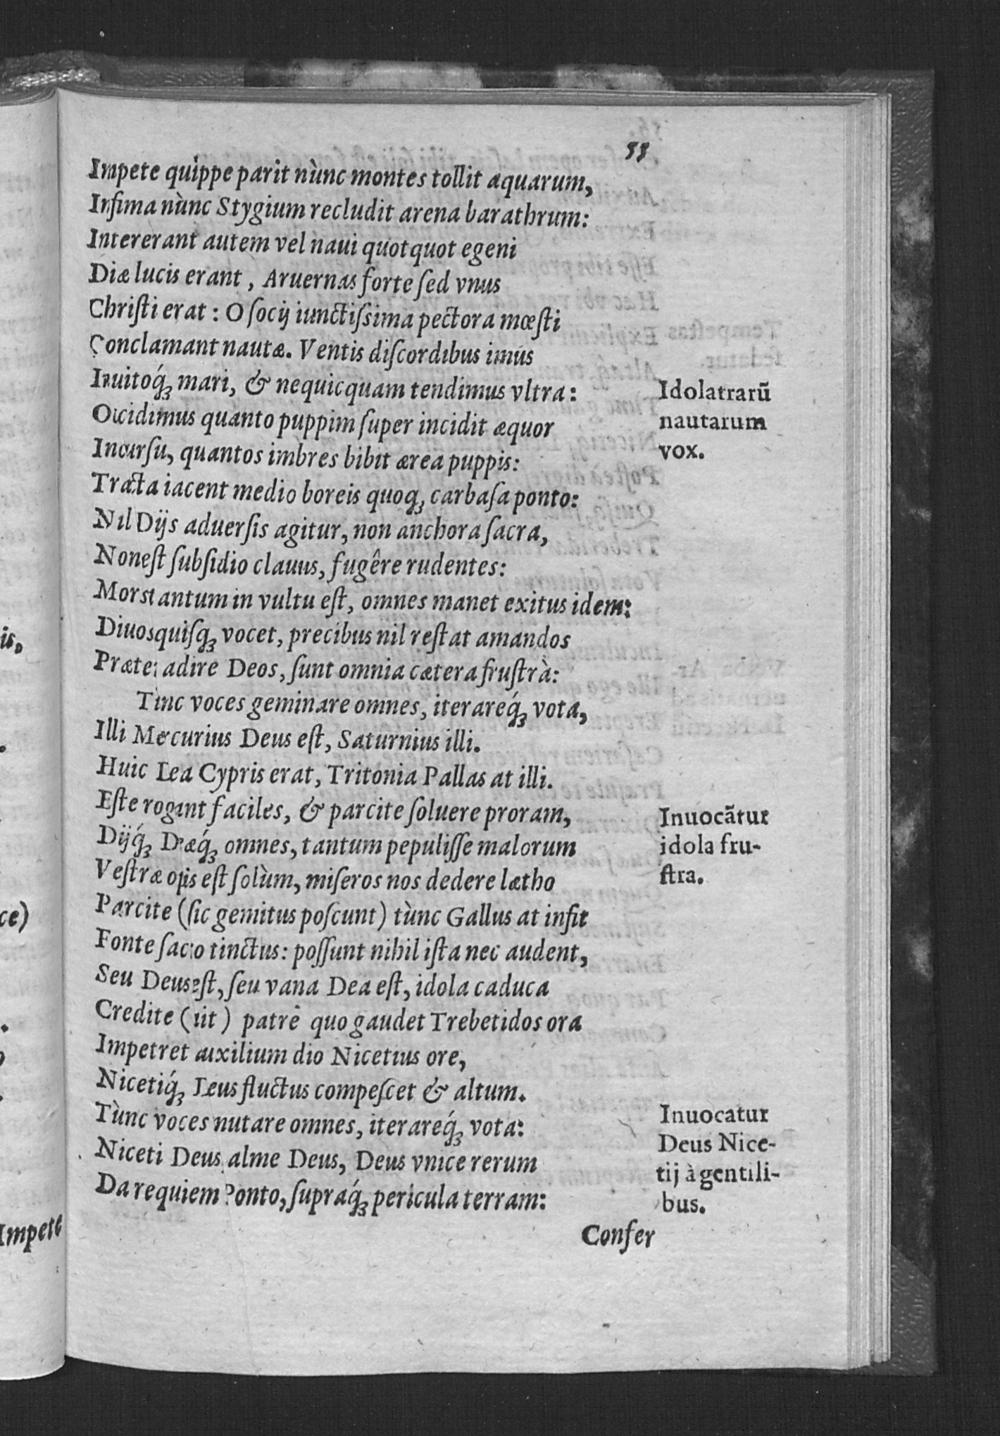 55
Impete quippe parit nùnc montes tollit aquarum,
Infima nùnc Stygium recludit arena barathrum:
Intererant autem vel naui quotquot egeni
Diæ lucis erant, Aruernas forte sed vnus
Christi erat: O socij iunctissima pectora mœsti
Conclamant nautæ. Ventis discordibus imus
Inuitoq́ꝫ mari, & nequicquam tendimus vltra:
Idolatrarū
Occidimus quanto puppim super incidit æquor
nautarum
Incursu, quantos imbres bibit ærea puppis:
vox.
Tracta iacent medio boreis quoqꝫ carbasa ponto:
Nil Dijs aduersis agitur, non anchora sacra,
Nonest subsidio clauus, fugêre rudentes:
Mors tantum in vultu est, omnes manet exitus idem:
Diuos quisqꝫ vocet, precibus nil restat amandos
Præter adire Deos, sunt omnia cætera frustrà:
Tùnc voces geminare omnes, iterareq́ꝫ vota,
Illi Mercurius Deus est, Saturnius illi.
Huic Dea Cypris erat, Tritonia Pallas at illi.
Este rogant faciles, & parcite soluere proram,
Inuocātur
Dijq́ꝫ Deæq́ꝫ omnes, tantum pepulisse malorum
idola fru-
Vestræ opis est solùm, miseros nos dedere lætho
stra.
Parcite (sic gemitus poscunt) tùnc Gallus at infit
Fonte sacro tinctus: possunt nihil ista nec audent,
Seu Deus est, seu vana Dea est, idola caduca
Credite (ait) patrè quo gaudet Trebetidos ora
Impetret auxilium dio Nicetius ore,
Nicetiq́ꝫ Deus fluctus compescet & altum.
Tùnc voces nutare omnes, iterareq́ꝫ vota:
Inuocatur
Niceti Deus alme Deus, Deus vnice rerum
Deus Nice-
Da requiem Ponto, supraq́ꝫ pericula terram:
tij à gentili-
bus.
Confer
is,
ce)
Impete